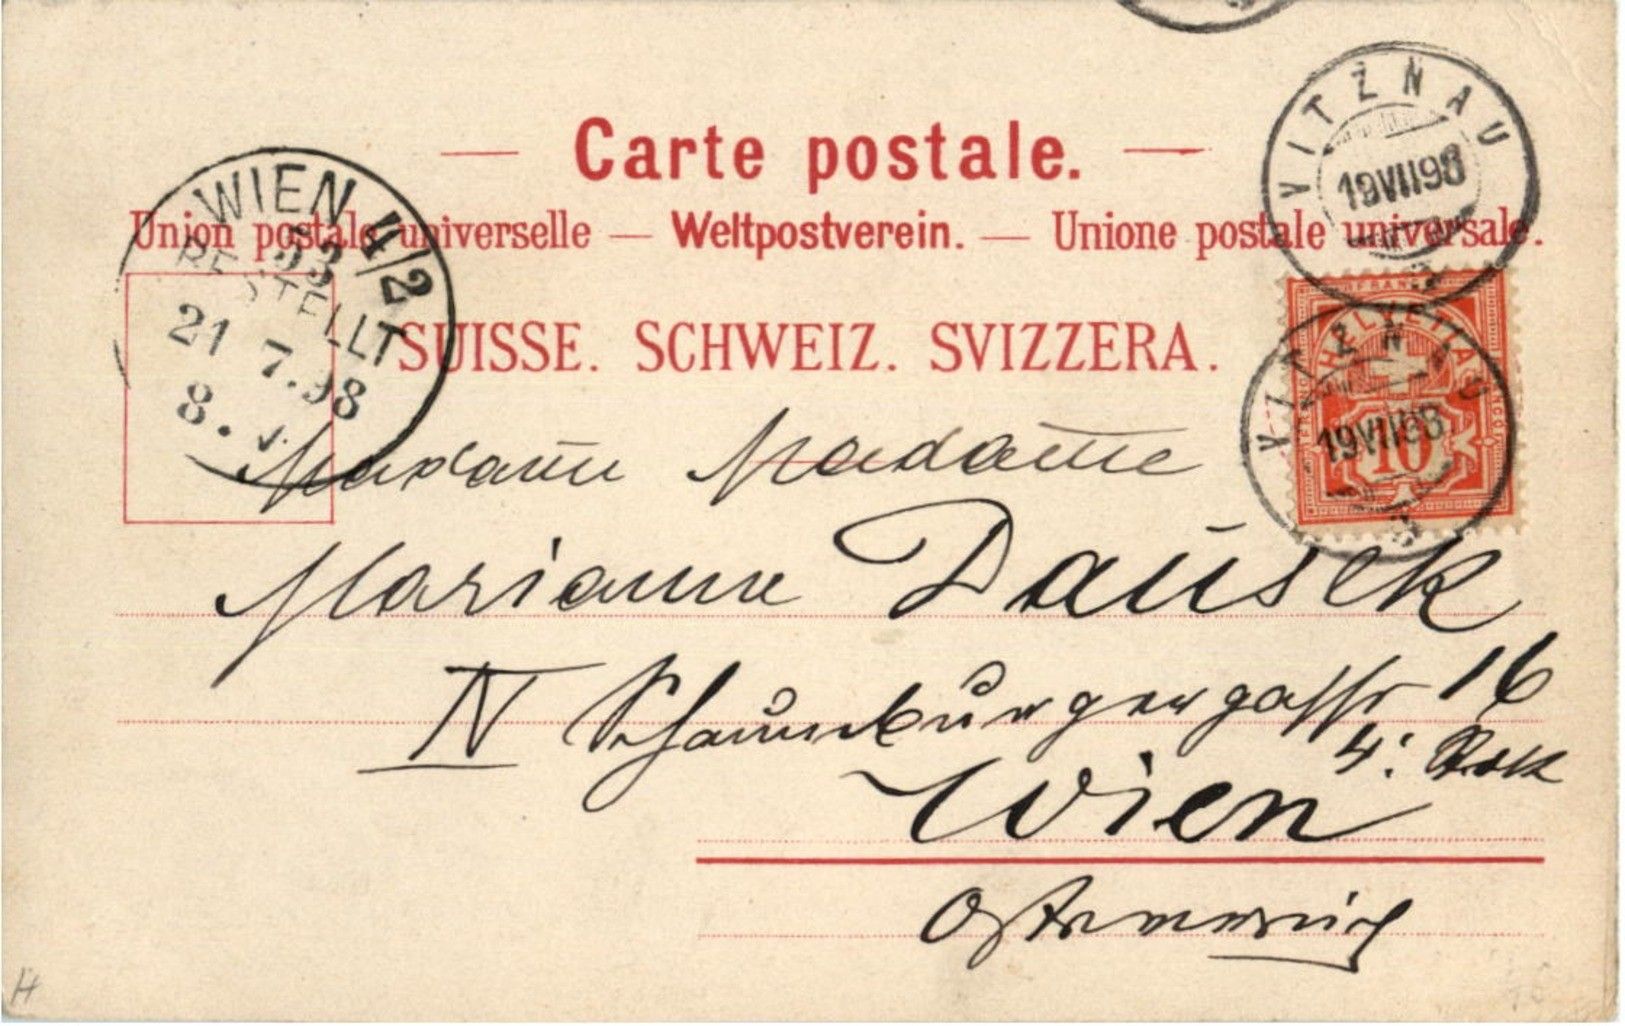 Carte postale.
Union postale universelle — Weltpostverein. — Unione postale universale.
SUISSE. SCHWEIZ. SVIZZERA.
WIEN 4/2
53
BESTELLT
21 7.98
8.
VITZNAU
19 VII 98
HELVETIA
FRANCO
10
VITZNAU
19 VII 98
Madame Madame
Marianne Dausek
IV Schaumburgergasse 16
4. Stock
Wien
Österreich
H